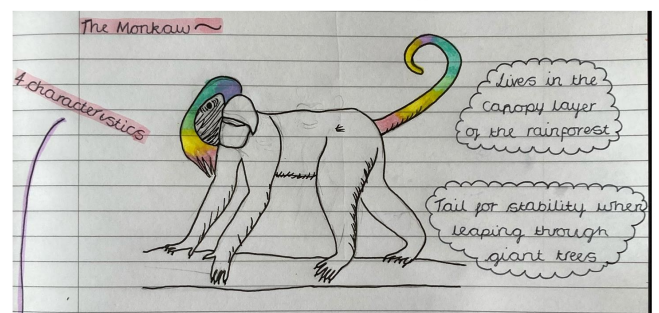 The Monkaw ~
4 characteristics
Lives in the
canopy layer
of the rainforest
Tail for stability when
leaping through
giant trees